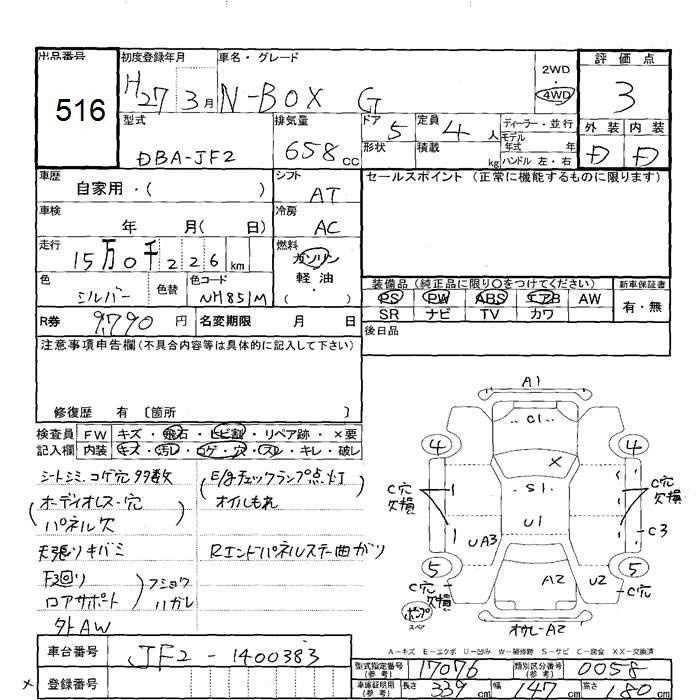 出品番号 初度登録年月 車名・グレード 2WD 評価点
516 H27 3月 N-BOX G 4WD 3
型式 排気量 ドア 5 定員 4人 ディーラー・並行 外装 内装
DBA-JF2 658cc 形状 積載 kg モデル年式 年 D D
ハンドル 左・右
車歴 自家用・( ) シフト AT セールスポイント(正常に機能するものに限ります)
車検 年 月( 日) 冷房 AC
走行 15万0千226km 燃料 ガソリン
軽油・( )
色 シルバー 色替 色コード NH851M 装備品(純正品に限り○をつけてください) 新車保証書
PS PW ABS エアB AW 有・無
R券 9,790円 名変期限 月 日 SR ナビ TV カワ
注意事項申告欄(不具合内容等は具体的に記入して下さい) 後日品
修復歴 有 〔箇所 〕
検査員 FW キズ・飛石・ヒビ割・リペア跡・×要
記入欄 内装 キズ・汚レ・コゲ・穴・スレ・キレ・破レ
シートシミ、コゲ穴多数
(オーディオレス・穴
パネル欠)
天張リキバミ
下廻り
ロアサポート)フショク
ハガレ
外AW
(E/gチェックランプ点灯
オイルもれ
Rエンドパネルステー曲がり
A1
C1
4 4
×
C穴 欠損 S1 C穴 欠損
U1
UA3 C3
5 5
A2 U2
C穴 欠損 C穴
ポンプ
スペア A2
A-キズ E-エクボ U-凹み W-補修跡 S-サビ C-腐食 XX-交換済
車台番号 JF2-1400383
登録番号
×
型式指定番号(参考) 17076 類別区分番号(参考) 0058
車庫証明用(参考) 長さ 339cm 幅 147cm 高さ 180cm